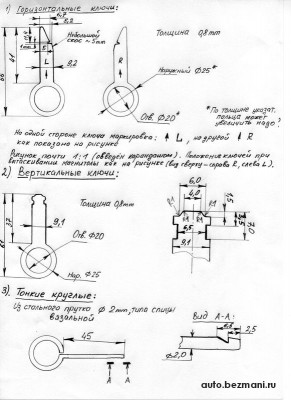 1) Горизонтальные ключи:
6,7
2,2
Небольшой
скос ~5мм
Толщина 0,8мм
61
L
R
9,2
Наружный Ф25*
Отв. Ф20*
*По толщине указат.
пальца может
увеличить надо
На одной стороне ключа маркировка: ↑ L, на другой ↑ R
как показано на рисунке
Рисунок почти 1:1 (обведён карандашом). Положения ключей при
вытаскивании магнитолы как на рисунке (вид сверху - справа R, слева L).
2) Вертикальные ключи:
Толщина 0,8мм
37
9,1
Отв. Ф20
Нар. Ф25
6,0
4,2
6,5
9,1
3) Тонкие круглые:
Из стального прутка Ф 2мм, типа спицы
вязальной
45
А А
Вид А-А:
2,5
Ф2,0
auto.bezmani.ru